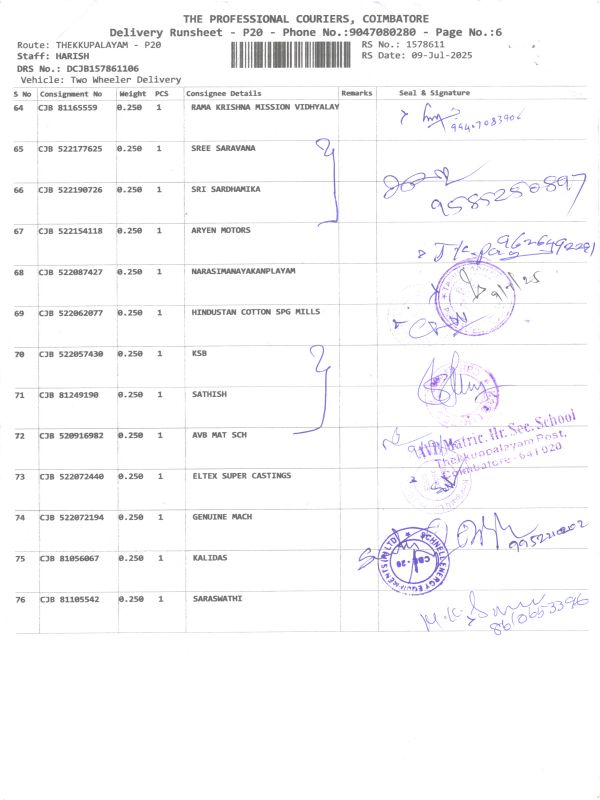 THE PROFESSIONAL COURIERS, COIMBATORE
Delivery Runsheet - P20 - Phone No.:9047080280 - Page No.:6
Route: THEKKUPALAYAM - P20 RS No.: 1578611
Staff: HARISH RS Date: 09-Jul-2025
DRS No.: DCJB157861106
Vehicle: Two Wheeler Delivery
S No Consignment No Weight PCS Consignee Details Remarks Seal & Signature
64 CJB 81165559 0.250 1 RAMA KRISHNA MISSION VIDHYALAY
65 CJB 522177625 0.250 1 SREE SARAVANA
66 CJB 522190726 0.250 1 SRI SARDHAMIKA
9585250897
67 CJB 522154118 0.250 1 ARYEN MOTORS
68 CJB 522087427 0.250 1 NARASIMANAYAKANPLAYAM
9/7/25
69 CJB 522062077 0.250 1 HINDUSTAN COTTON SPG MILLS
70 CJB 522057430 0.250 1 KSB
71 CJB 81249190 0.250 1 SATHISH
72 CJB 520916982 0.250 1 AVB MAT SCH
Matric. Hr. Sec. School
Thekkupalayam Post,
Coimbatore - 641 020
73 CJB 522072440 0.250 1 ELTEX SUPER CASTINGS
74 CJB 522072194 0.250 1 GENUINE MACH
75 CJB 81056067 0.250 1 KALIDAS
SCHNELL ENERGY EQUIPMENTS (P) LTD
CBE - 20
76 CJB 81105542 0.250 1 SARASWATHI
8610653396